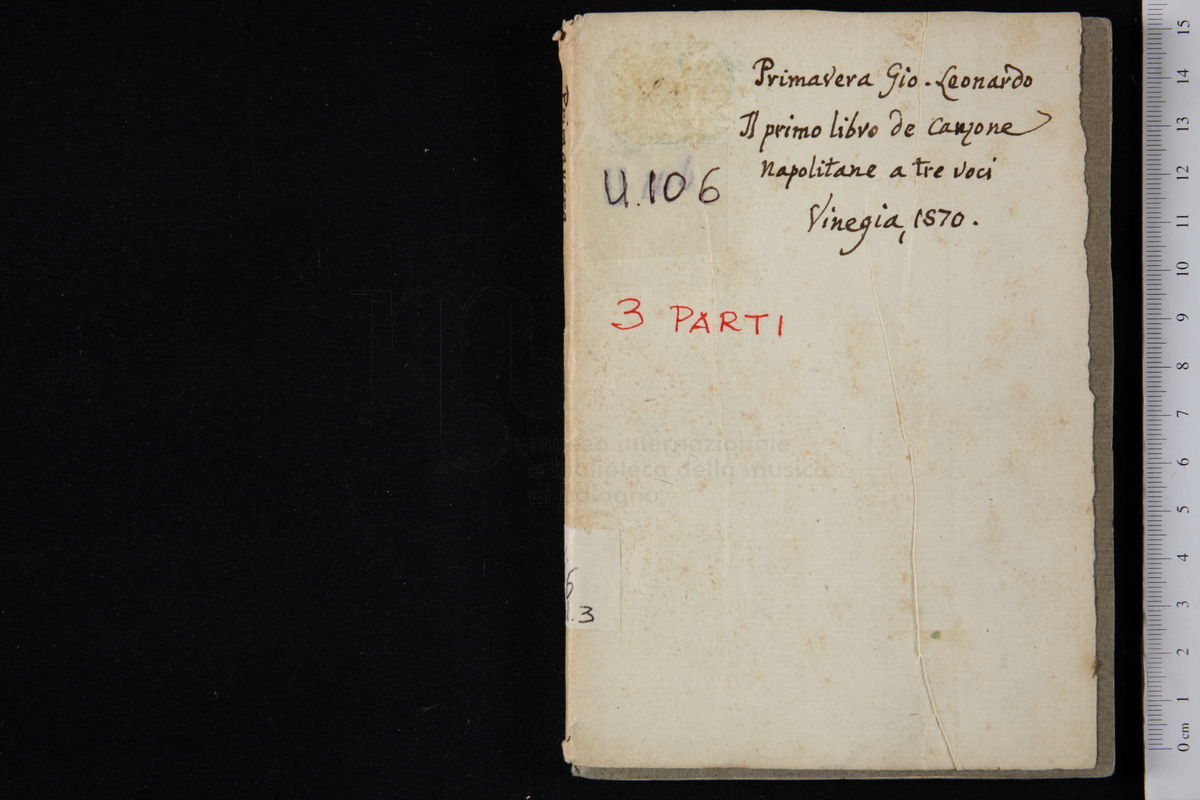 Primavera Gio. Leonardo
Il primo libro de Canzone
Napolitane a tre voci
Vinegia, 1570.
U.106
3 PARTI
6
.3
museo internazionale
e biblioteca della musica
di bologna
15
14
13
12
11
10
9
8
7
6
5
4
3
2
1
0 cm